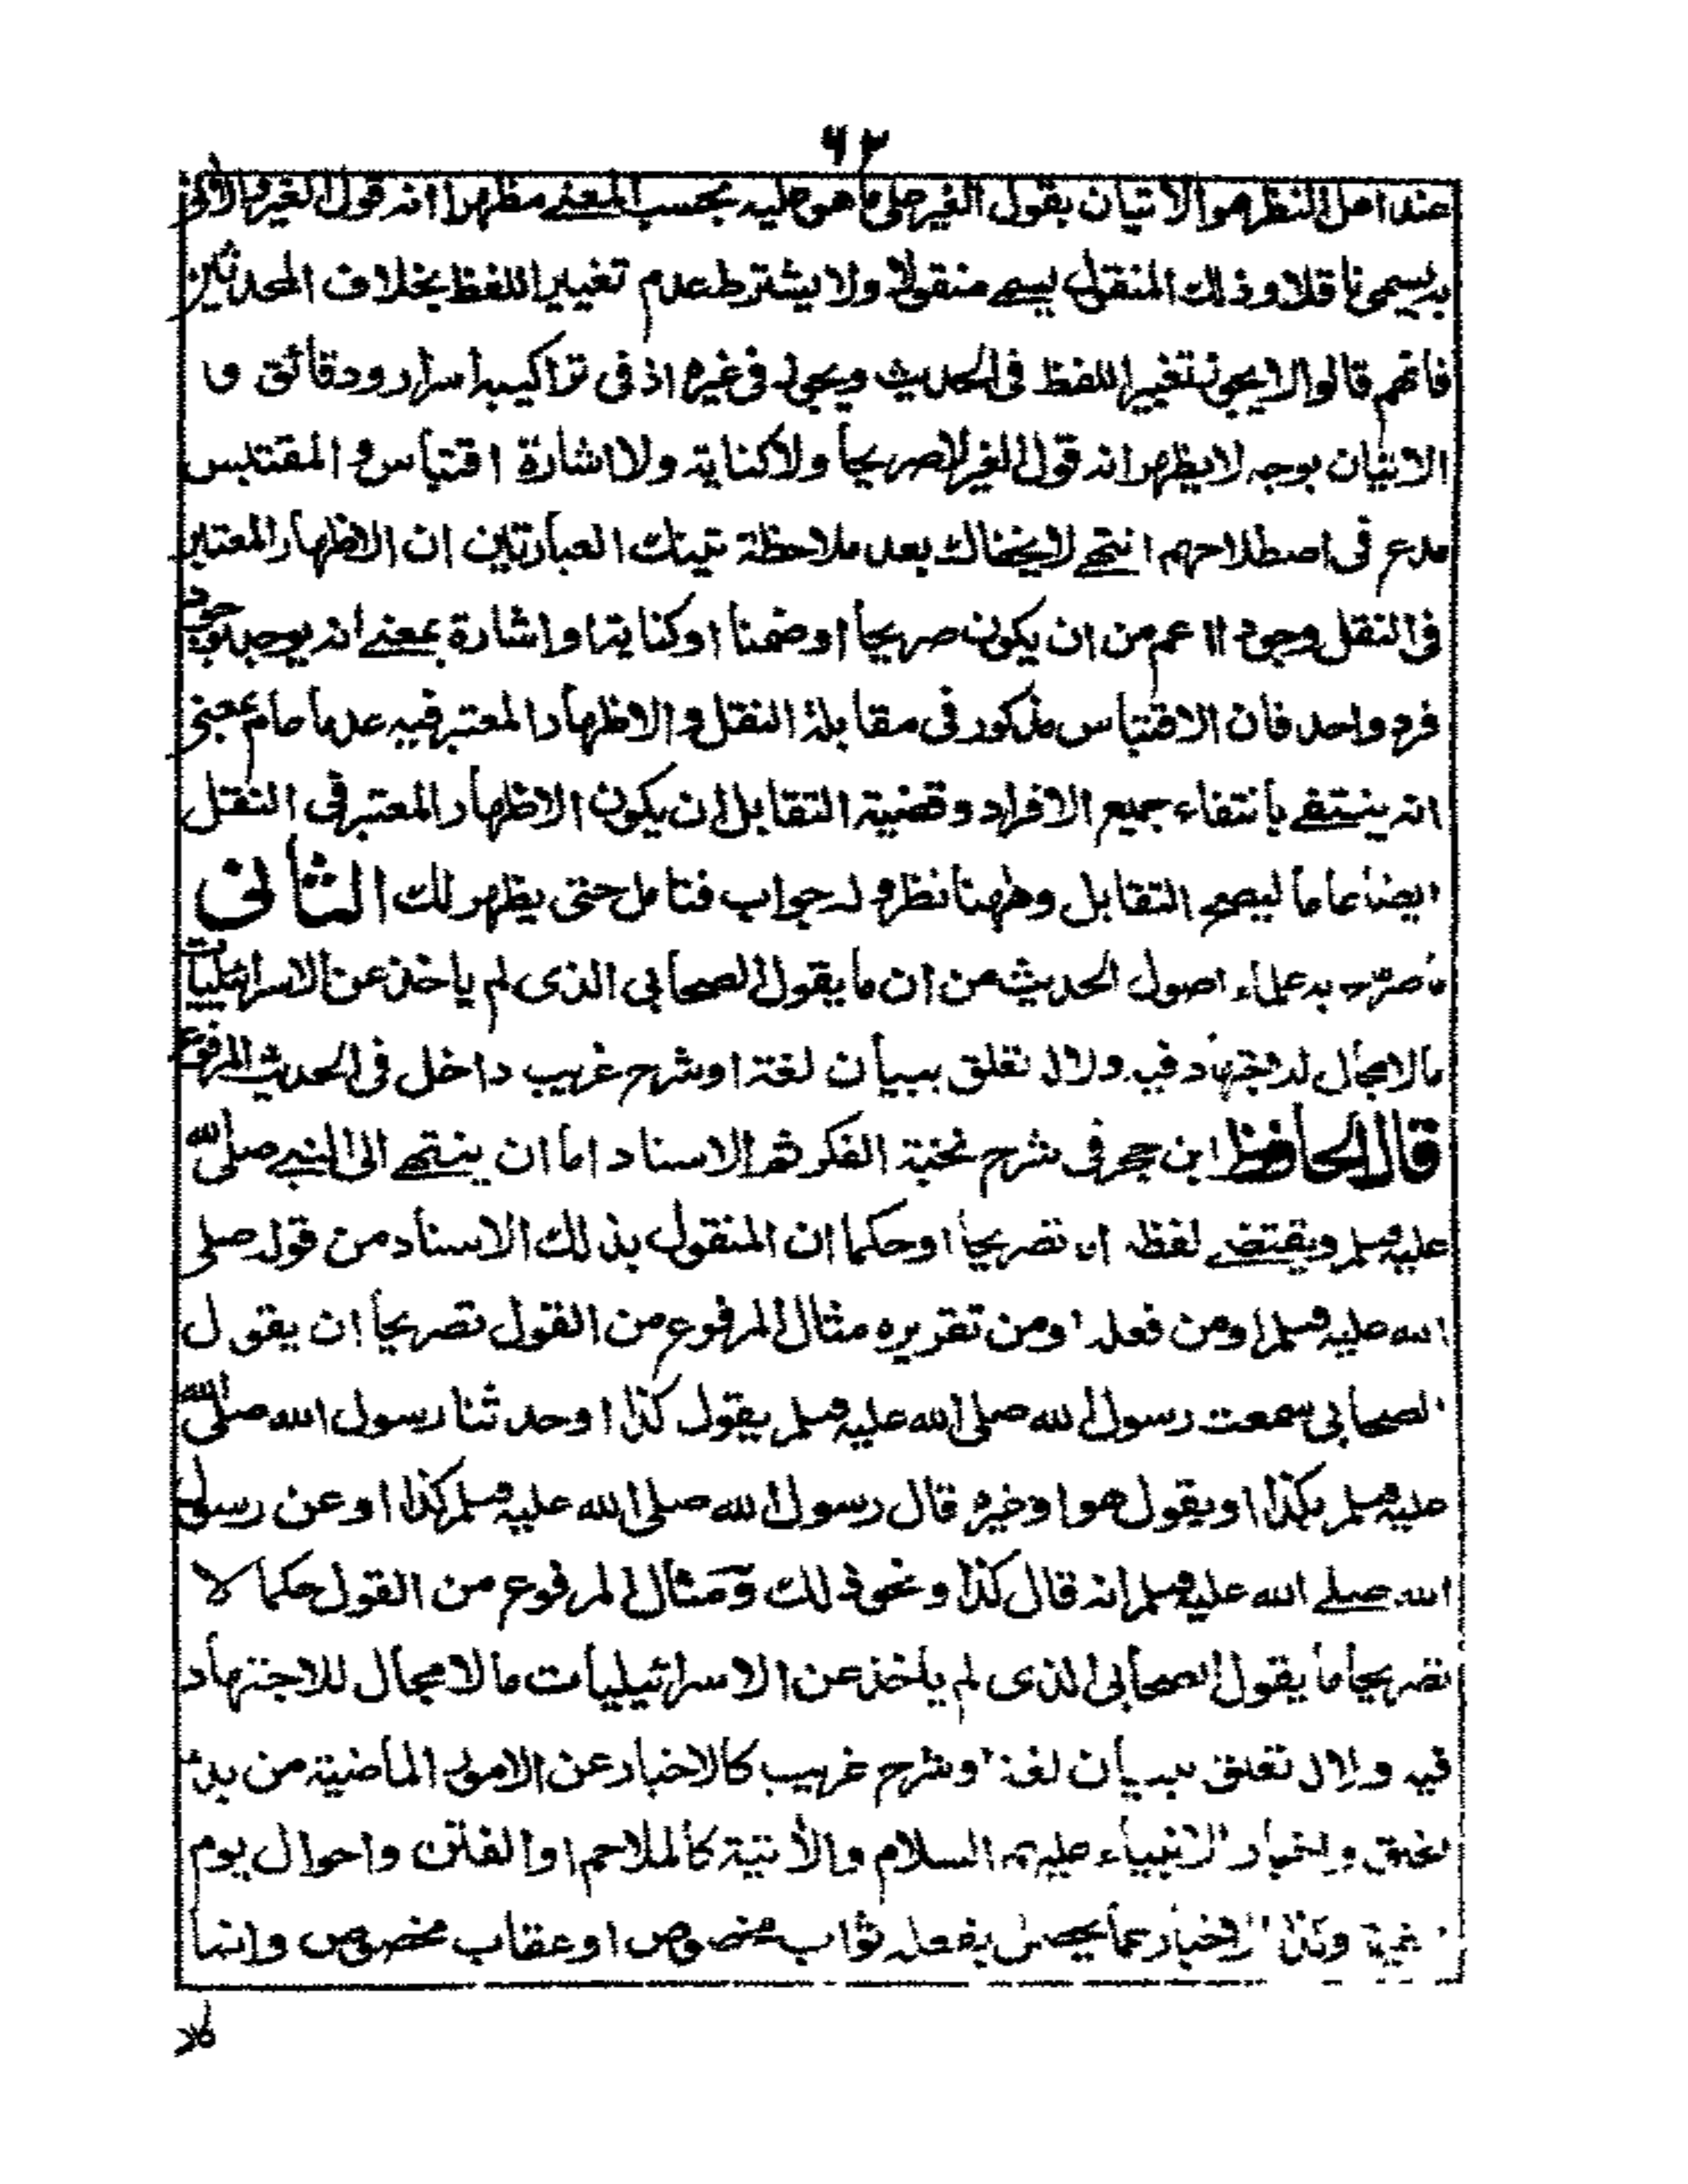 ٦٢
عند اهل النظر هو الاتيان بقول الغير على ما هو عليه بحسب المعنے مظهرا انه قول الغير والآتی
به يسمى ناقلا وذلك المنقول يسمے منقولا ولا يشترط عدم تغيير اللفظ بخلاف المحدثين
فانهم قالوا لا يجوز تغيير اللفظ فى الحديث ويجوز فى غيره اذ فى تراكيبه اسرار ودقائق و
الاتيان بوجه لا يظهر انه قول الغير لا صريحا ولا كناية ولا اشارة اقتباس والمقتبس
مدع فى اصطلاحهم انتهے لا يخفاك بعد ملاحظة تينك العبارتين ان الاظهار المعتبر
فى النقل وجودا اعم من ان يكون صريحا او ضمنا او كناية او اشارة بمعنے انه يوجد بوجود
فرد واحد فان الاقتباس مذكور فى مقابلة النقل والاظهار المعتبر فيه عدما عام بمعنى
انه ينتفے بانتفاء جميع الافراد وقضية التقابل ان يكون الاظهار المعتبر فى النقل
ايضا عاما ليصح التقابل وههنا نظر وله جواب فتامل حتى يظهر لك الثانى
ما صرح به علماء اصول الحديث من ان ما يقول الصحابى الذى لم ياخذ عن الاسرائيليات
ما لا مجال للاجتهاد فيه ولا له تعلق ببيان لغة او شرح غريب داخل فى الحديث المرفوع
قال الحافظ ابن حجر فى شرح نخبة الفكر ثم الاسناد اما ان ينتهے الى النبے صلى الله
عليه وسلم ويقتضے لفظه اما تصريحا او حكما ان المنقول بذلك الاسناد من قوله صلى
الله عليه وسلم او من فعله او من تقريره مثال المرفوع من القول تصريحا ان يقول
الصحابى سمعت رسول الله صلى الله عليه وسلم يقول كذا او حدثنا رسول الله صلى الله
عليه وسلم بكذا او يقول هو او غيره قال رسول الله صلى الله عليه وسلم كذا او عن رسول
الله صلے الله عليه وسلم انه قال كذا ونحو ذلك ومثال المرفوع من القول حكما لا
تصريحا ما يقول الصحابى الذى لم ياخذ عن الاسرائيليات ما لا مجال للاجتهاد
فيه ولا له تعلق ببيان لغة او شرح غريب كالاخبار عن الامور الماضية من بدء
الخلق واخبار الانبياء عليهم السلام والآتية كالملاحم او الفتن واحوال يوم
القيمة وكذا الاخبار عما يحصل بفعله ثواب مخصوص او عقاب مخصوص وانما